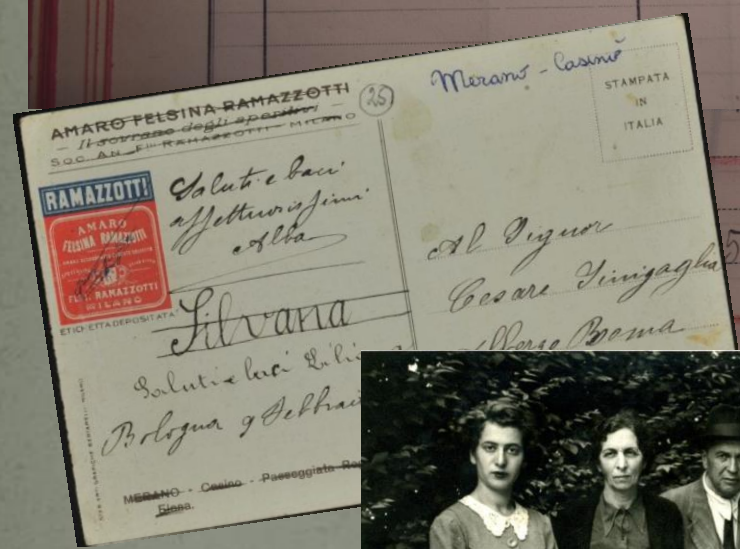 AMARO FELSINA RAMAZZOTTI
- Il sovrano degli aperitivi -
SOC. AN. Flli RAMAZZOTTI - MILANO
25
Merano - Casinò
STAMPATA
IN
ITALIA
RAMAZZOTTI
AMARO
FELSINA RAMAZZOTTI
FLLI. RAMAZZOTTI
MILANO
ETICHETTA DEPOSITATA
Saluti e baci
affettuosissimi
Alba
Silvana
Saluti e baci
Bologna 9 Febbrai
Al Signor
Cesare Sinigaglia
Albergo Roma
MERANO - Casino - Passeggiata Re
Elena.